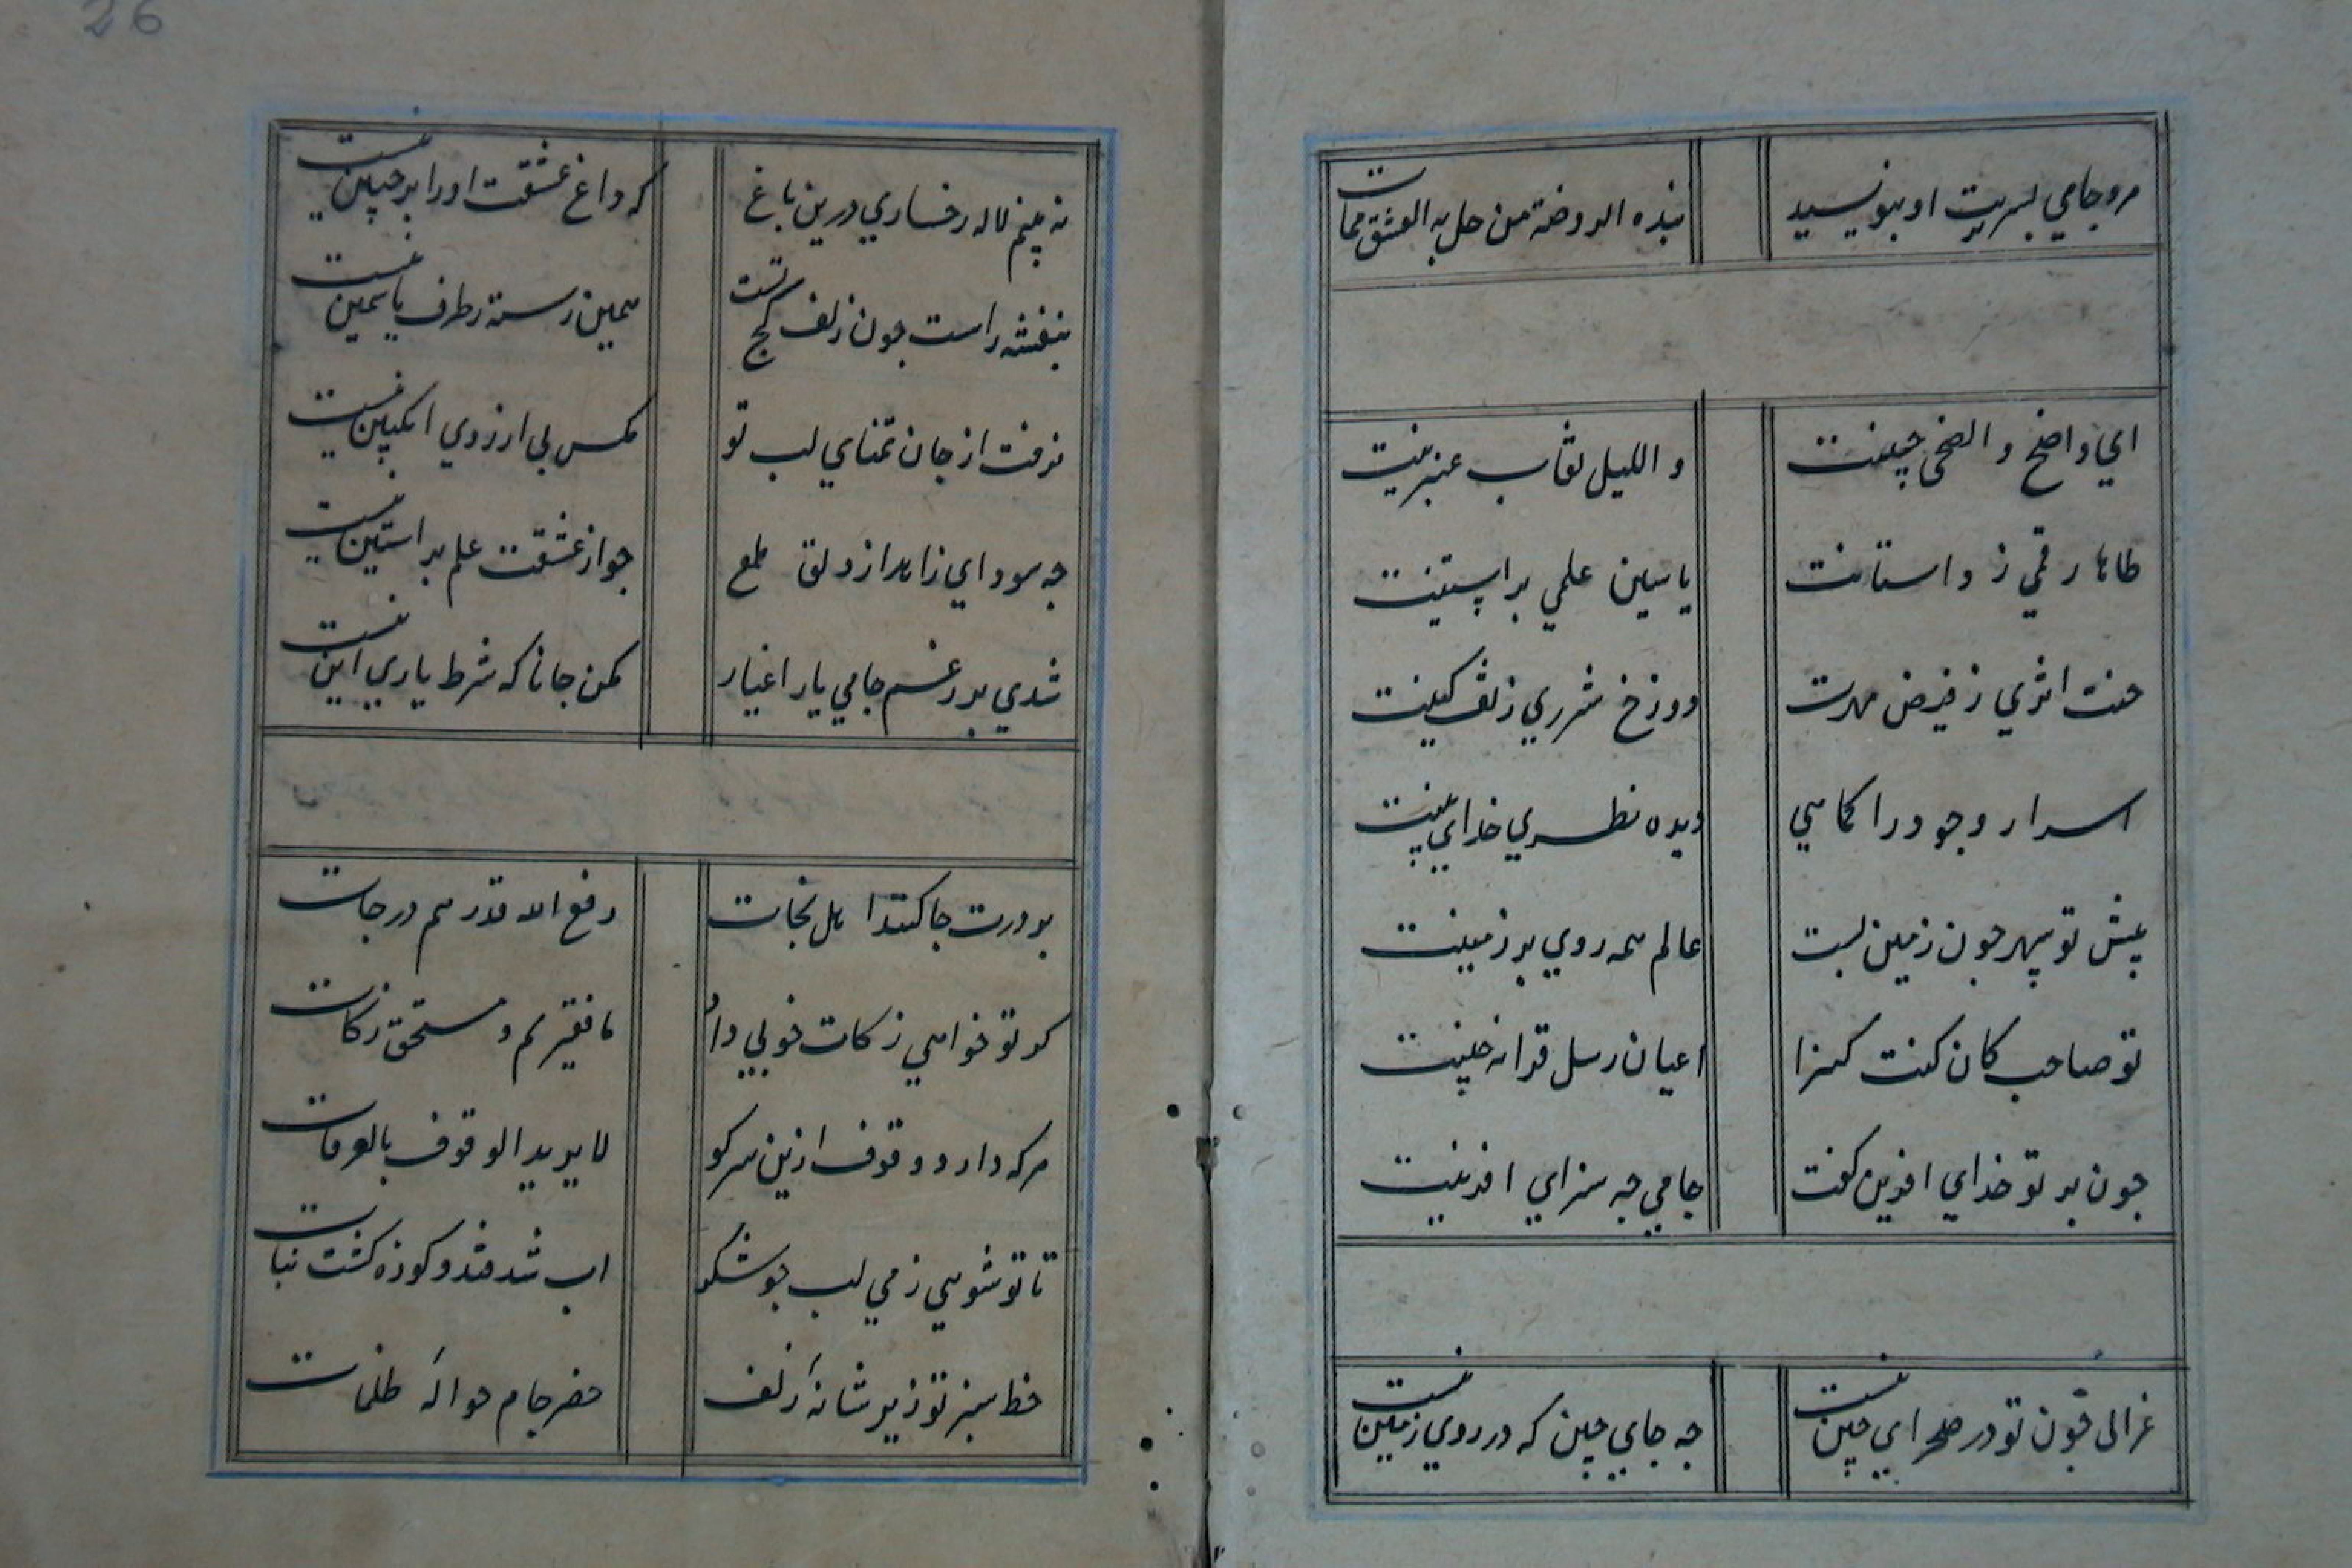 مرو جامي بسر تربت او بنويسيد
هذه الروضة من حل به العشق فمات
اي واضح والضحی جبينت
والليل نقاب عنبرينت
طاها رقمي ز داستانت
ياسين علمي بر استينت
جنت اثري ز فيض مهرت
دوزخ شرري ز تف كينت
اسرار وجود را كماهي
ديده نظر خداي بينت
پيش تو سپهر چون زمين پست
عالم همه روي بر زمينت
تو صاحب كان كنت كنزا
اعيان رسل قراضه چينت
چون بر تو خداي افرين گفت
جامي چه سزاي افرينت
غزالي چون تو در صحراي چين نيست
چه جاي چين كه در روي زمين نيست
نه بينم لاله رخساري درين باغ
كه داغ عشقت او را بر جبين نيست
بنفشه راست چون زلف كجت رست
همين رسته ز طرف ياسمين نيست
نرفت از جان تمناي لب تو
مگس بي ارزوي انگبين نيست
چه سود اي زاهد از دلق ملمع
چو از عشقت علم بر استين نيست
شدي بر رغم جامي يار اغيار
مكن جانا كه شرط ياري اين نيست
بر درت جا كنند اهل نجات
رفع الله قدرهم درجات
گر تو خواهي زكات خوبي داد
ما فقيريم و مستحق زكات
هر كه دارد وقوف ازين سر كو
لا يريد الوقوف بالعرفات
تا تو شوئي ز مي لب چو شكر
اب شد قند و كوزه گشت نبات
خط سبز تو زير شانهٔ زلف